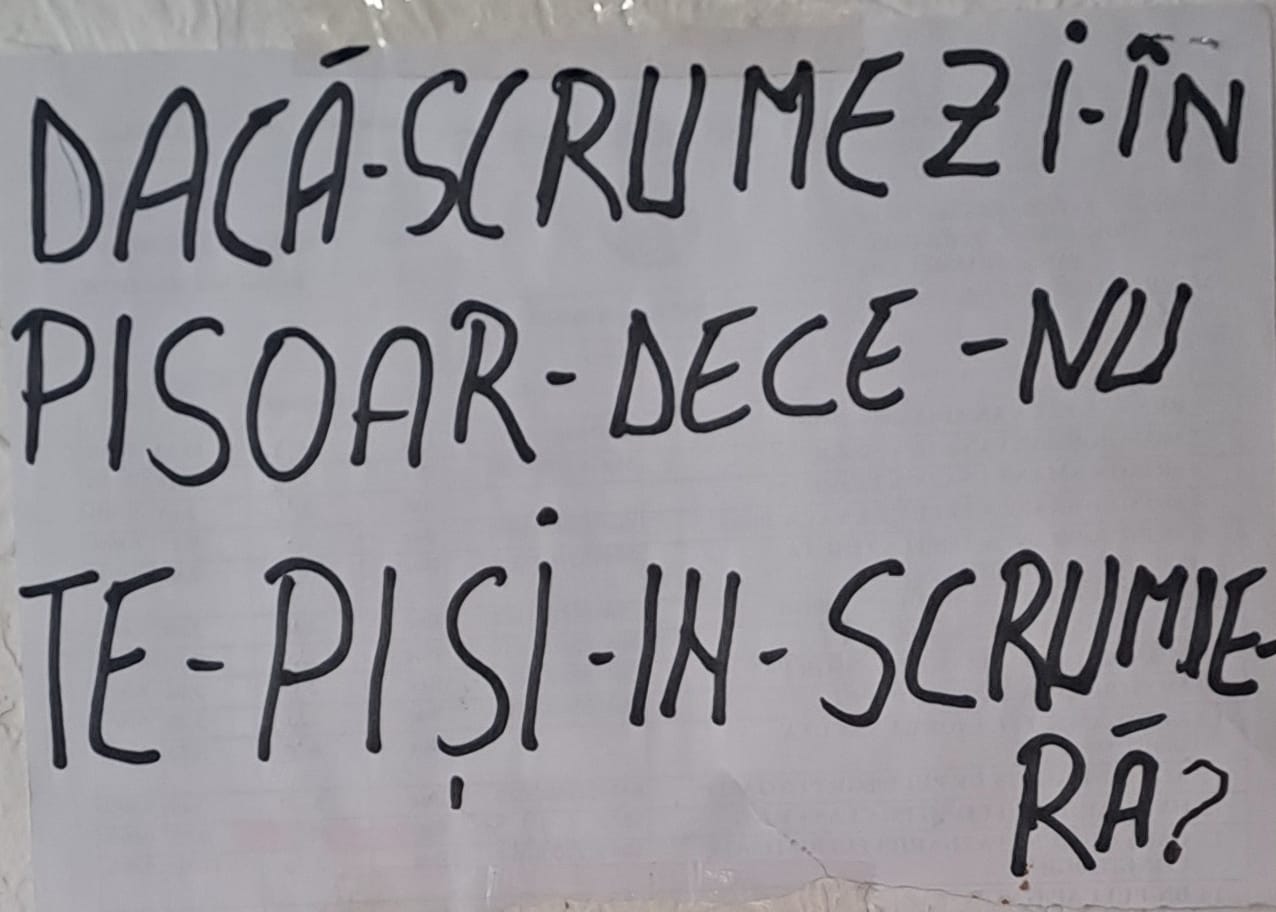 DACĂ-SCRUMEZI-ÎN
PISOAR-DECE-NU
TE-PIȘI-IN-SCRUMIE-
RĂ?